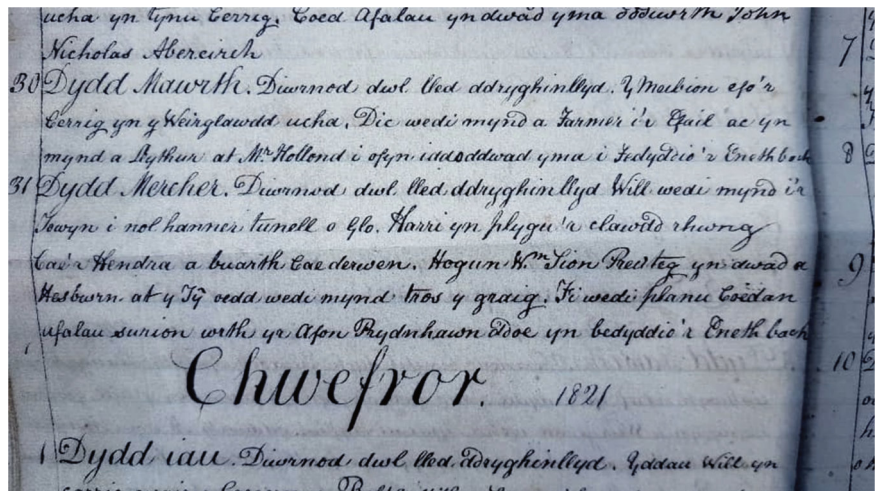 ucha yn tynu Cerrig. Coed Afalau yn dwad yma oddiwrth John
Nicholas Abereirch
30 Dydd Mawrth. Diwrnod dwl lled ddryghinllyd. Y Meibion efo'r
Cerrig yn y Weirglawdd ucha. Dic wedi mynd a Farmer i'r Efail ac yn
mynd a llythur at Mr Hollond i ofyn iddo ddwad yma i Fedyddio'r Eneth bach
31 Dydd Mercher. Diwrnod dwl lled ddryghinllyd Will wedi mynd i'r
Towyn i nol hanner tunell o Glo. Harri yn plygu'r clawdd rhwng
Cae'r Hendra a buarth Caederwen. Hogun Wm Sion Prenteg yn dwad a
Hesbwrn at y Tŷ oedd wedi mynd tros y graig. Fi wedi planu Coedan
afalau surion wrth yr Afon Prydnhawn Ddoe yn bedyddio'r Eneth bach
Chwefror. 1821
1 Dydd iau. Diwrnod dwl lled ddryghinllyd. Y ddau Will yn
7
8
9
10